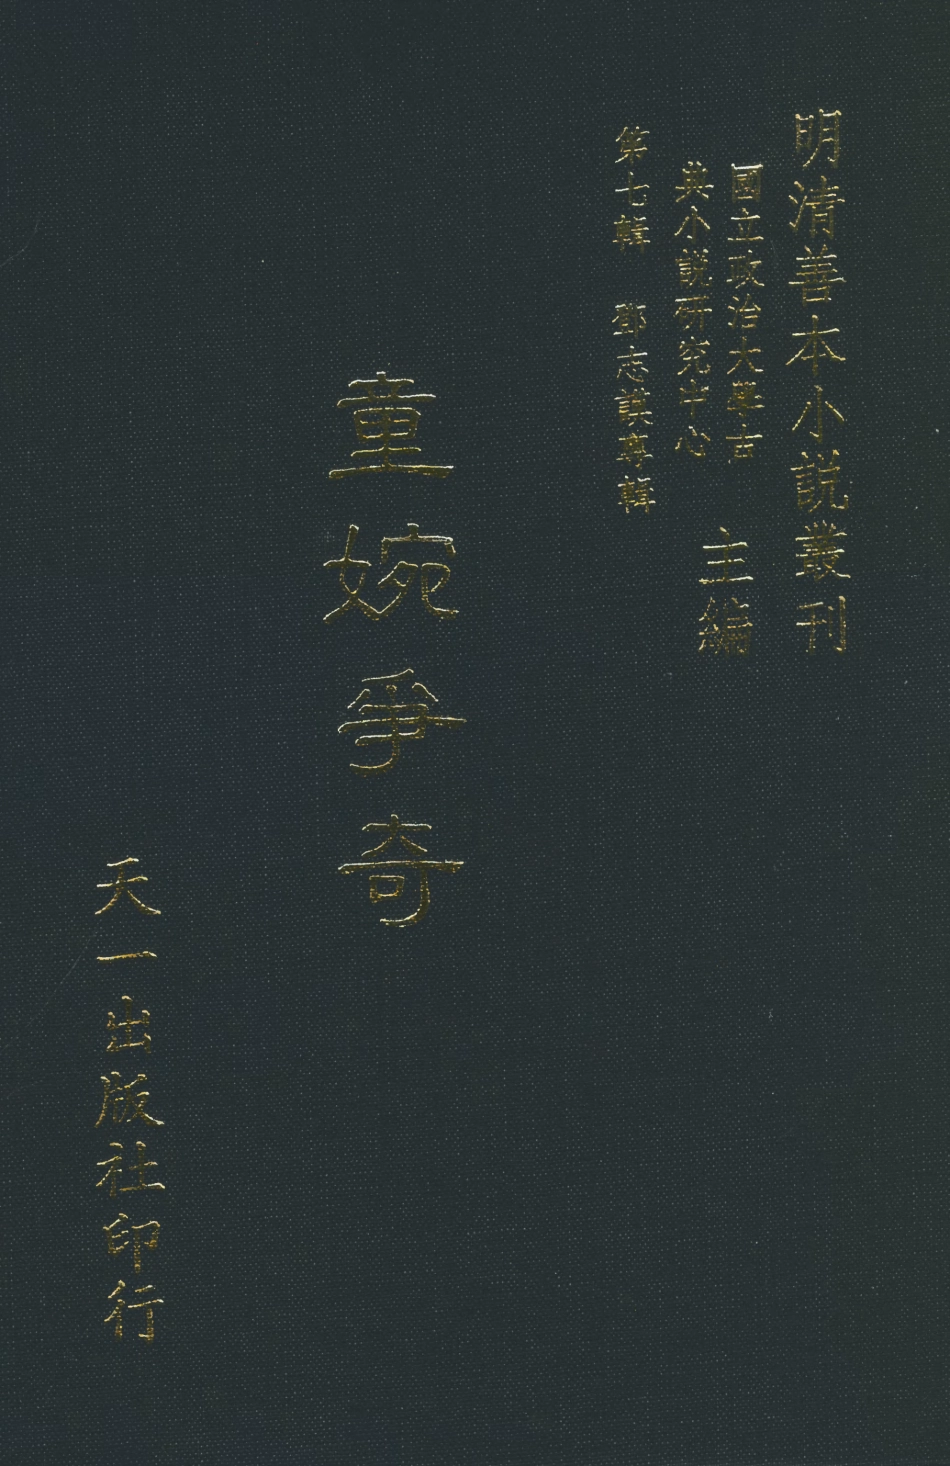 明清善本小說叢刊
國立政治大學古
典小說研究中心
主編
第七輯 鄧志謨專輯
童婉爭奇
天一出版社印行